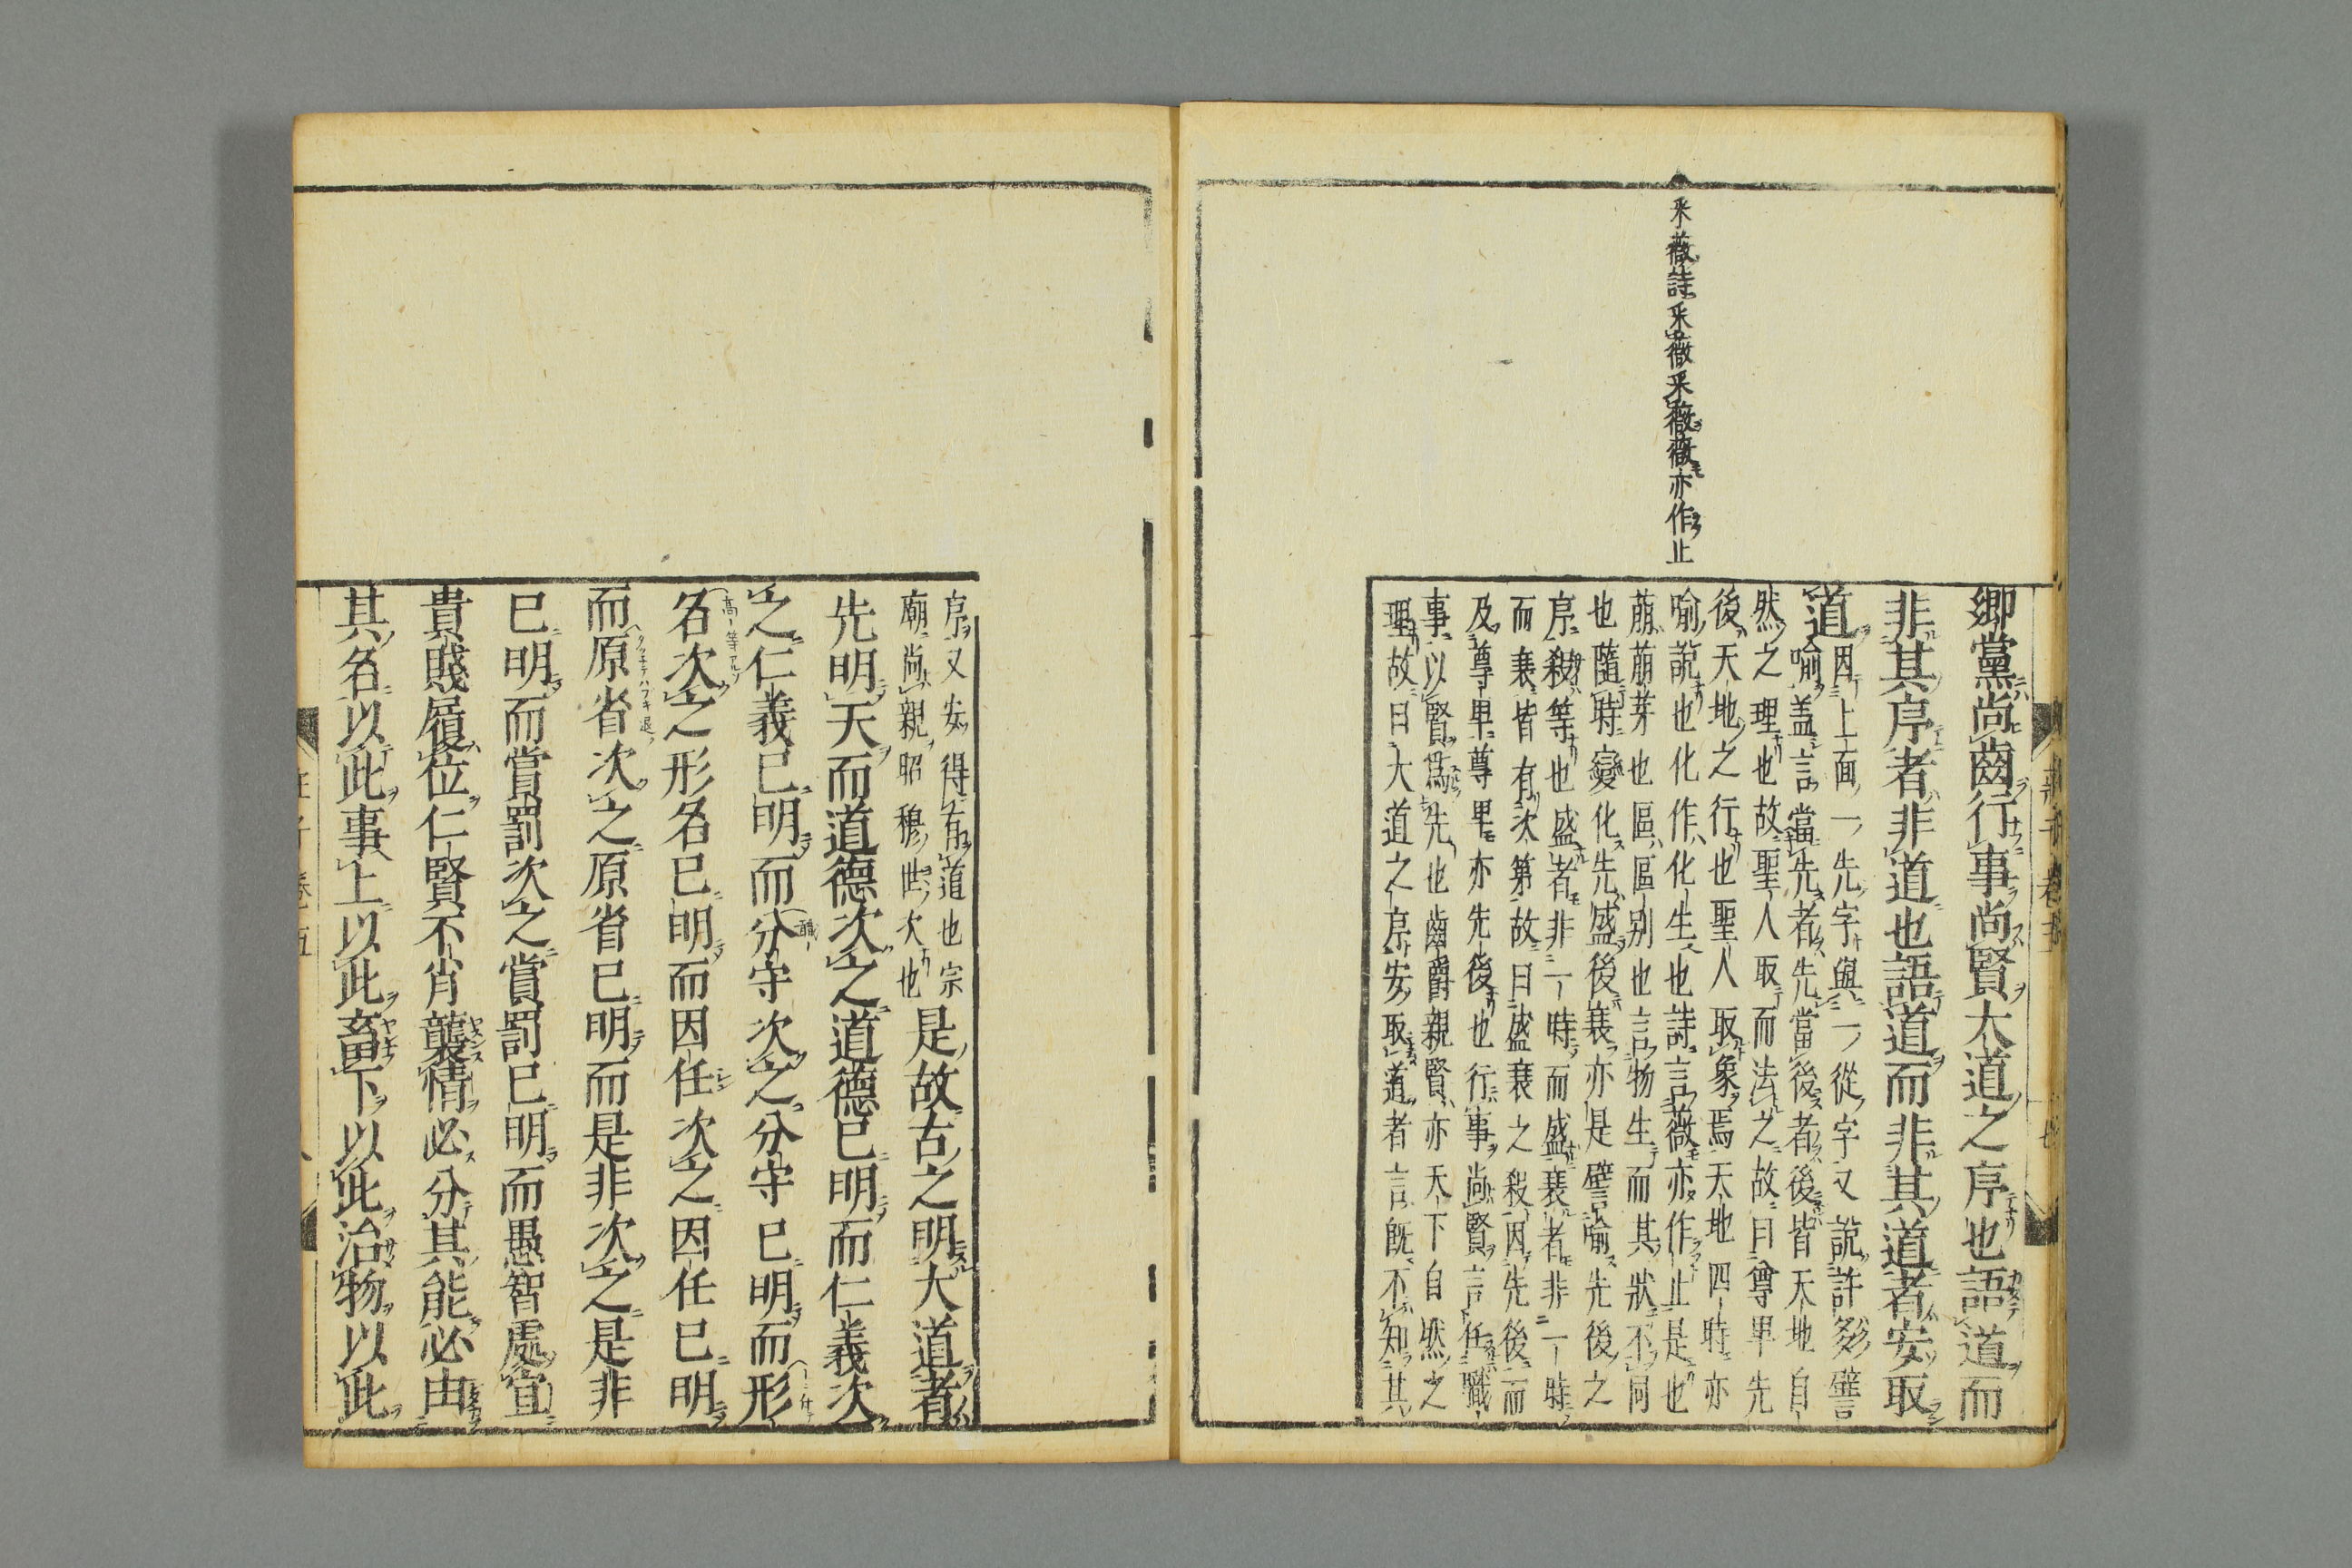 采薇詩采薇采薇薇亦作止
鄉黨尚齒行事尚賢大道之序也語道而
非其序者非道也語道而非其道者安取
道
因上面一先字與一從字又說許多譬
喻盖言當先者先當後者後皆天地自
然之理也故聖人取而法之故曰尊卑先
後天地之行也聖人取象焉天地四時亦
喻說也化作化生也詩言薇亦作止是也
萠萠芽也區區别也言物生而其狀不同
也隨時變化先盛後衰亦是譬喻先後之
序殺等也盛者非一時而盛衰者非一時
而衰皆有次第故曰盛衰之殺因先後而
及尊卑尊卑亦先後也行事尚賢言任職
事以賢爲先也齒爵親賢亦天下自然之
理故曰大道之序安取道者言旣不知其
序又安得有道也宗
廟尚親昭穆世次也
是故古之明大道者
先明天而道德次之道德已明而仁義次
之仁義已明而分守次之分守已明而形
名次之形名已明而因任次之因任已明
而原省次之原省已明而是非次之是非
已明而賞罰次之賞罰已明而愚智處宜
貴賤履位仁賢不肖襲情必分其能必由
其名以此事上以此畜下以此治物以此